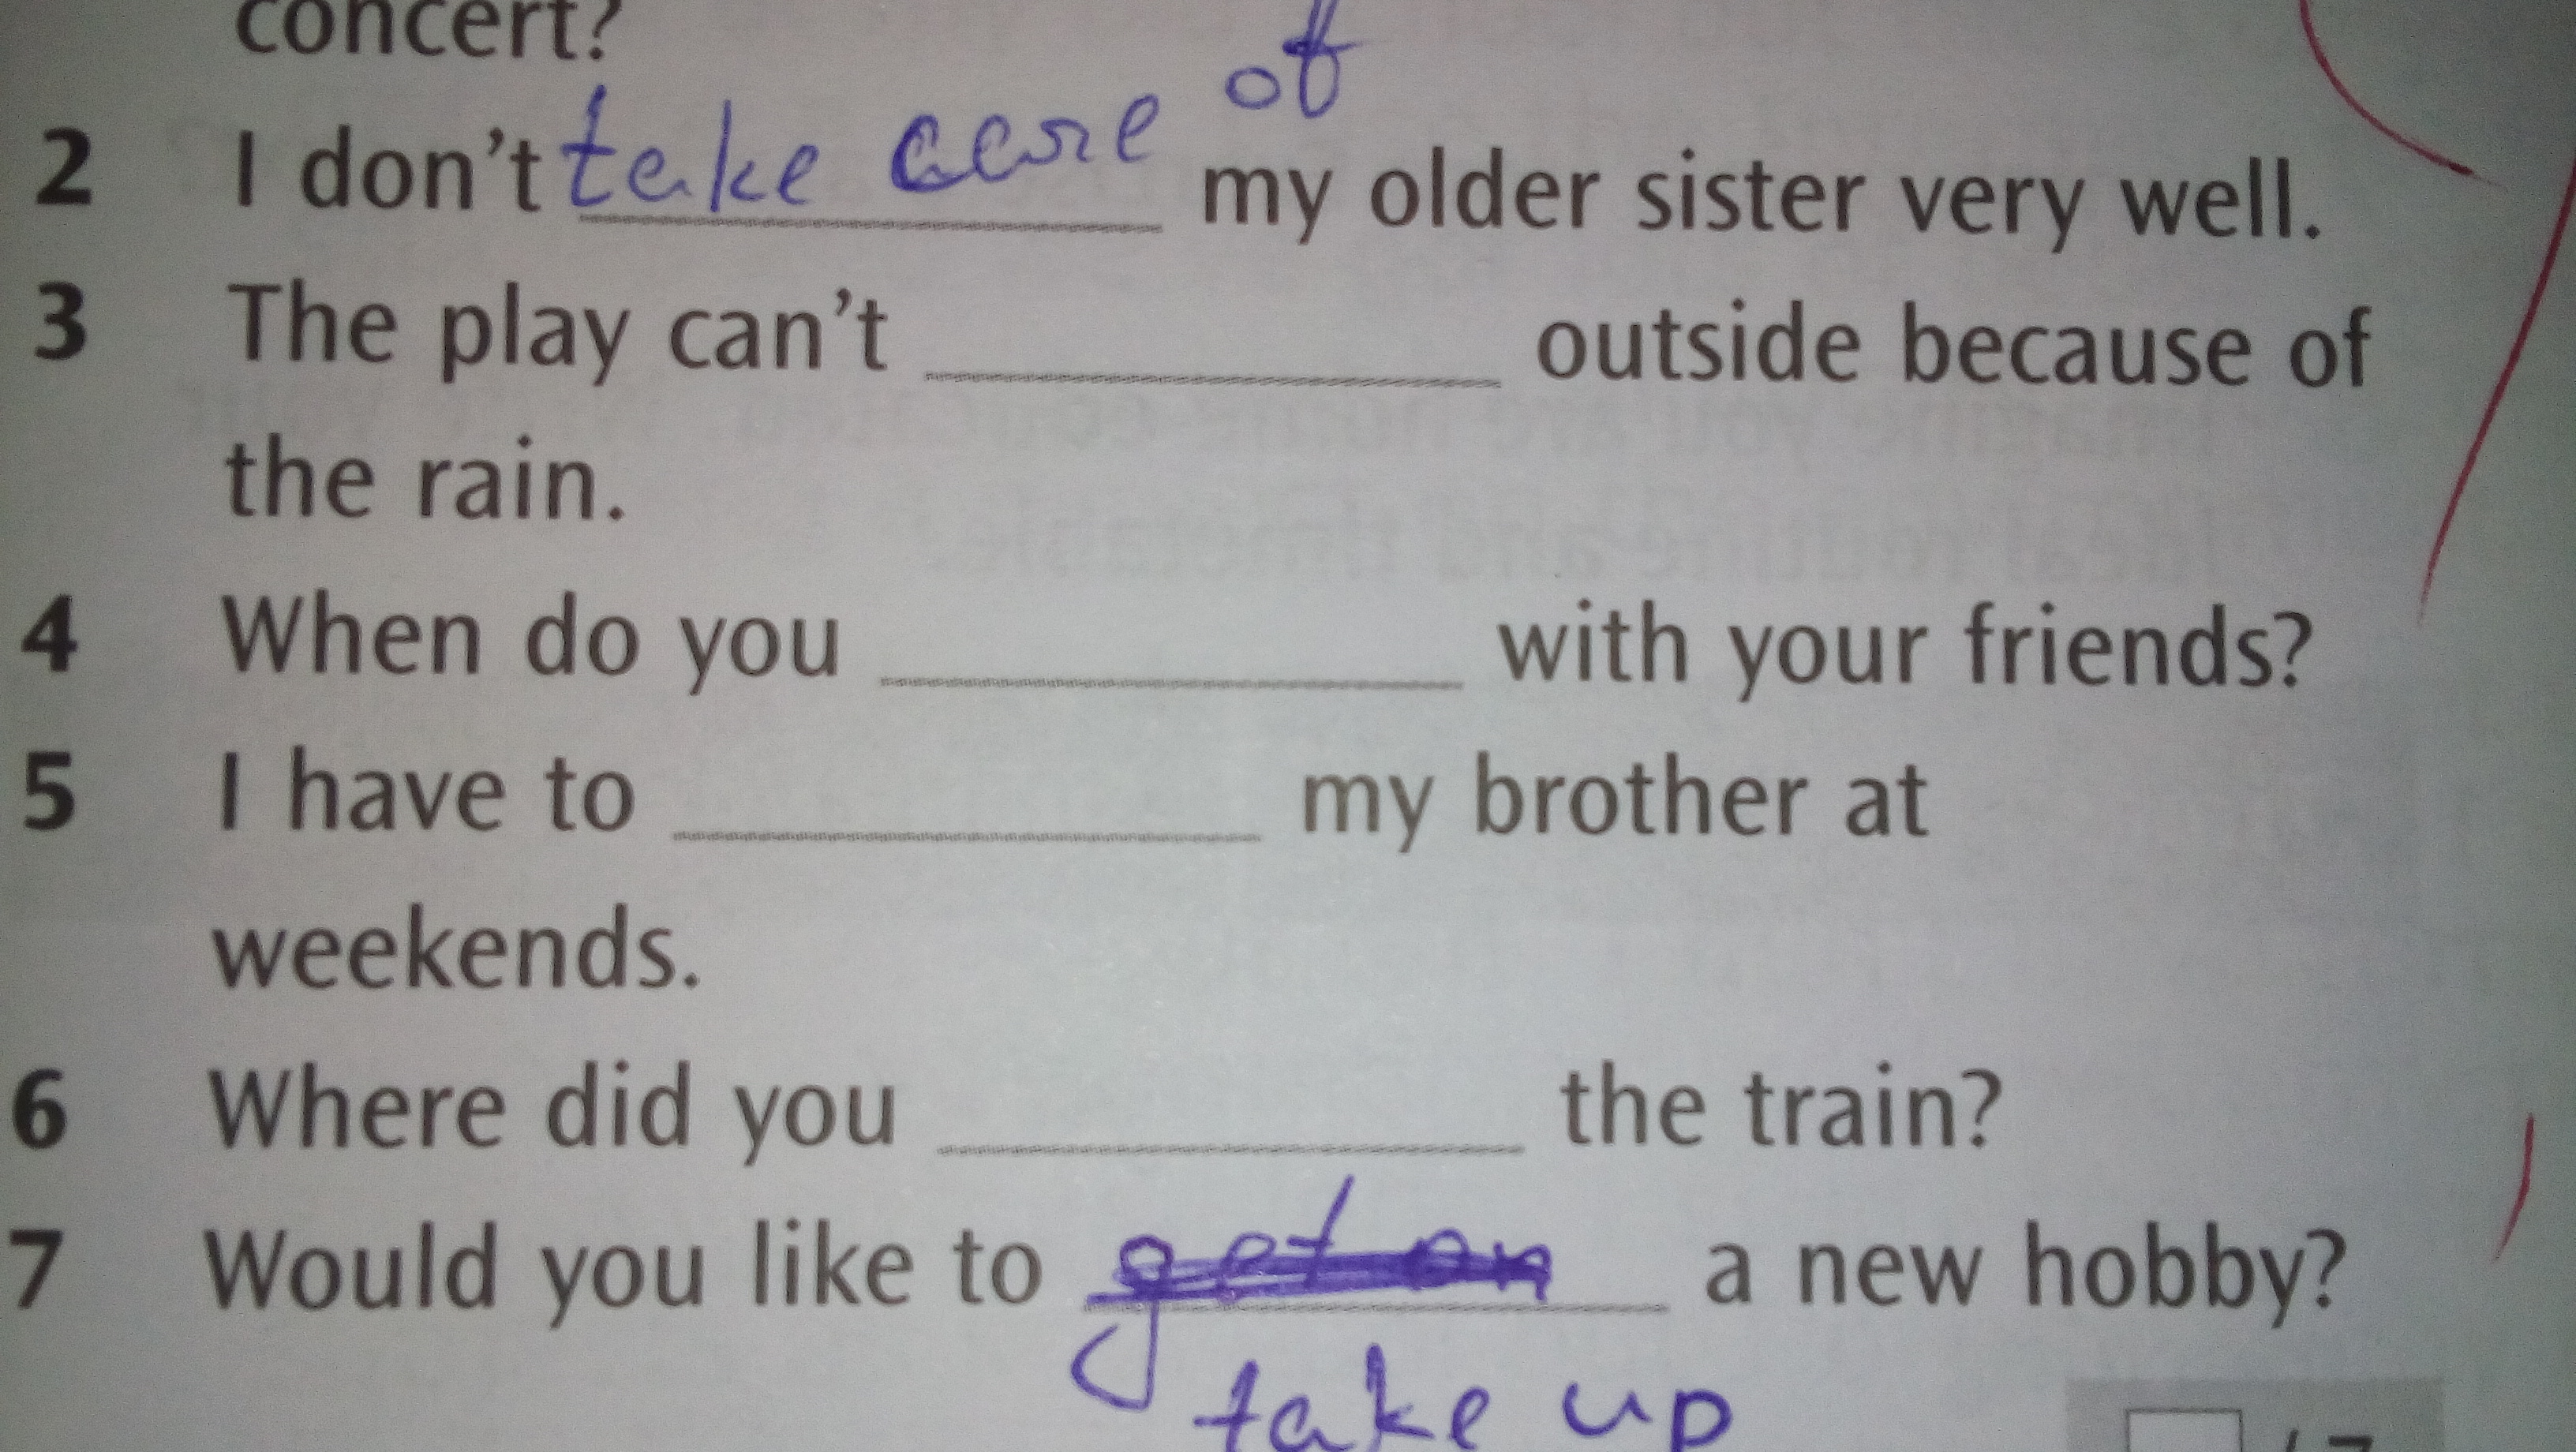 concert?
of
2 I don't take care my older sister very well.
3 The play can't outside because of
the rain.
4 When do you with your friends?
5 I have to my brother at
weekends.
6 Where did you the train?
7 Would you like to get on a new hobby?
take up